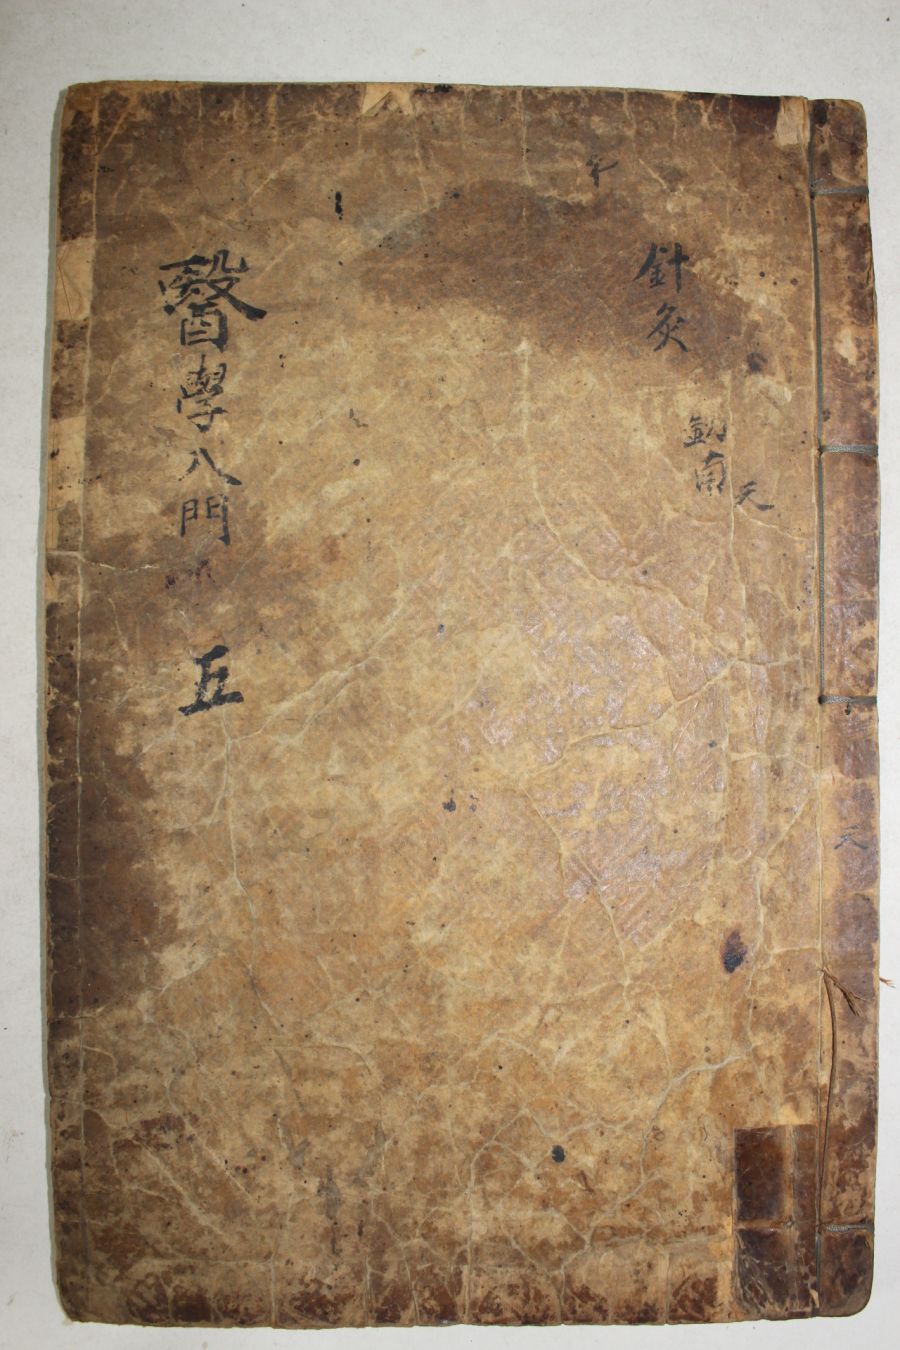 針灸
天
南
醫學入門
五